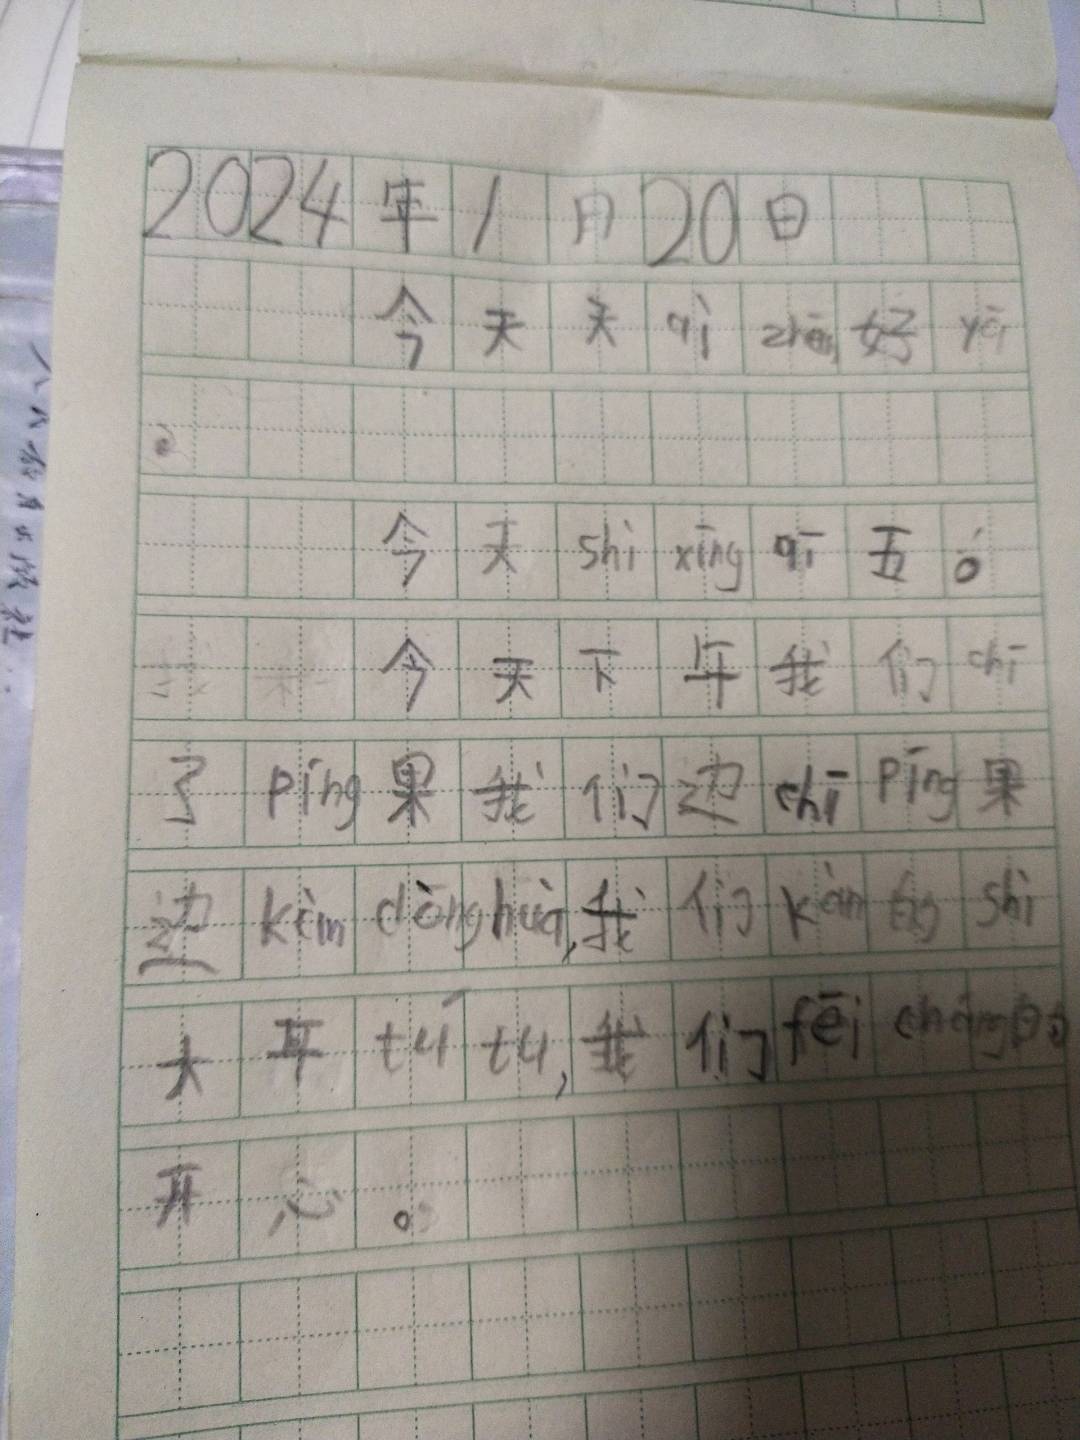 2024年1月20日
今天天qì zhēn好yā
。
今天shì xīng qī五。
今天下午我们chī
了píng果我们边chī píng果
边kàn dòng huà,我们kàn的shì
大耳tú tu,我们fēi cháng的
开心。